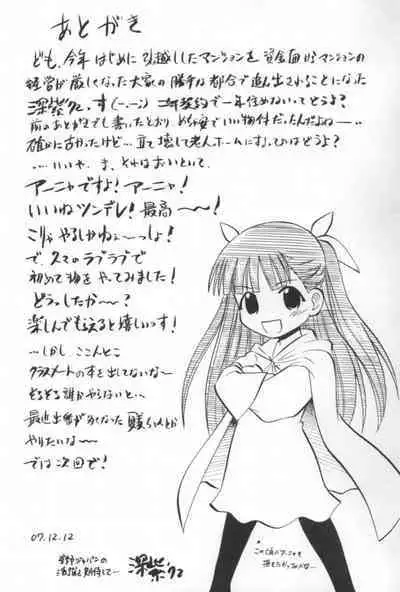 あとがき
ども、今年はじめに引越ししたマンションを資金面からマンションの
経営が厳しくなった大家の勝手な都合で追い出されることになった
深紫です(ー.ー;) 二年契約で一年住めないってどうよ?
前のあとがきでも書いたとおり めちゃ安でいい物件だったんだよねー…
確かに古かったけど… 立て壊して老人ホームにするってのはどうよ?
…いいや、ま、それはおいといて、
アーニャですよ!アーニャ!
いいねツンデレ!最高〜〜!
こりゃやるしかねぇ〜っしょ!
で、久々のラブラブで
初めて物をやってみました!
どうっしたか〜?
楽しんでもらえると嬉しいっす!
…しかし、ここんとこ
クラスメートの本を出してないな〜
そろそろ誰かやらないと…
最近出番が少なくなった
やりたいな〜
では次回で!
07.12.12
深紫